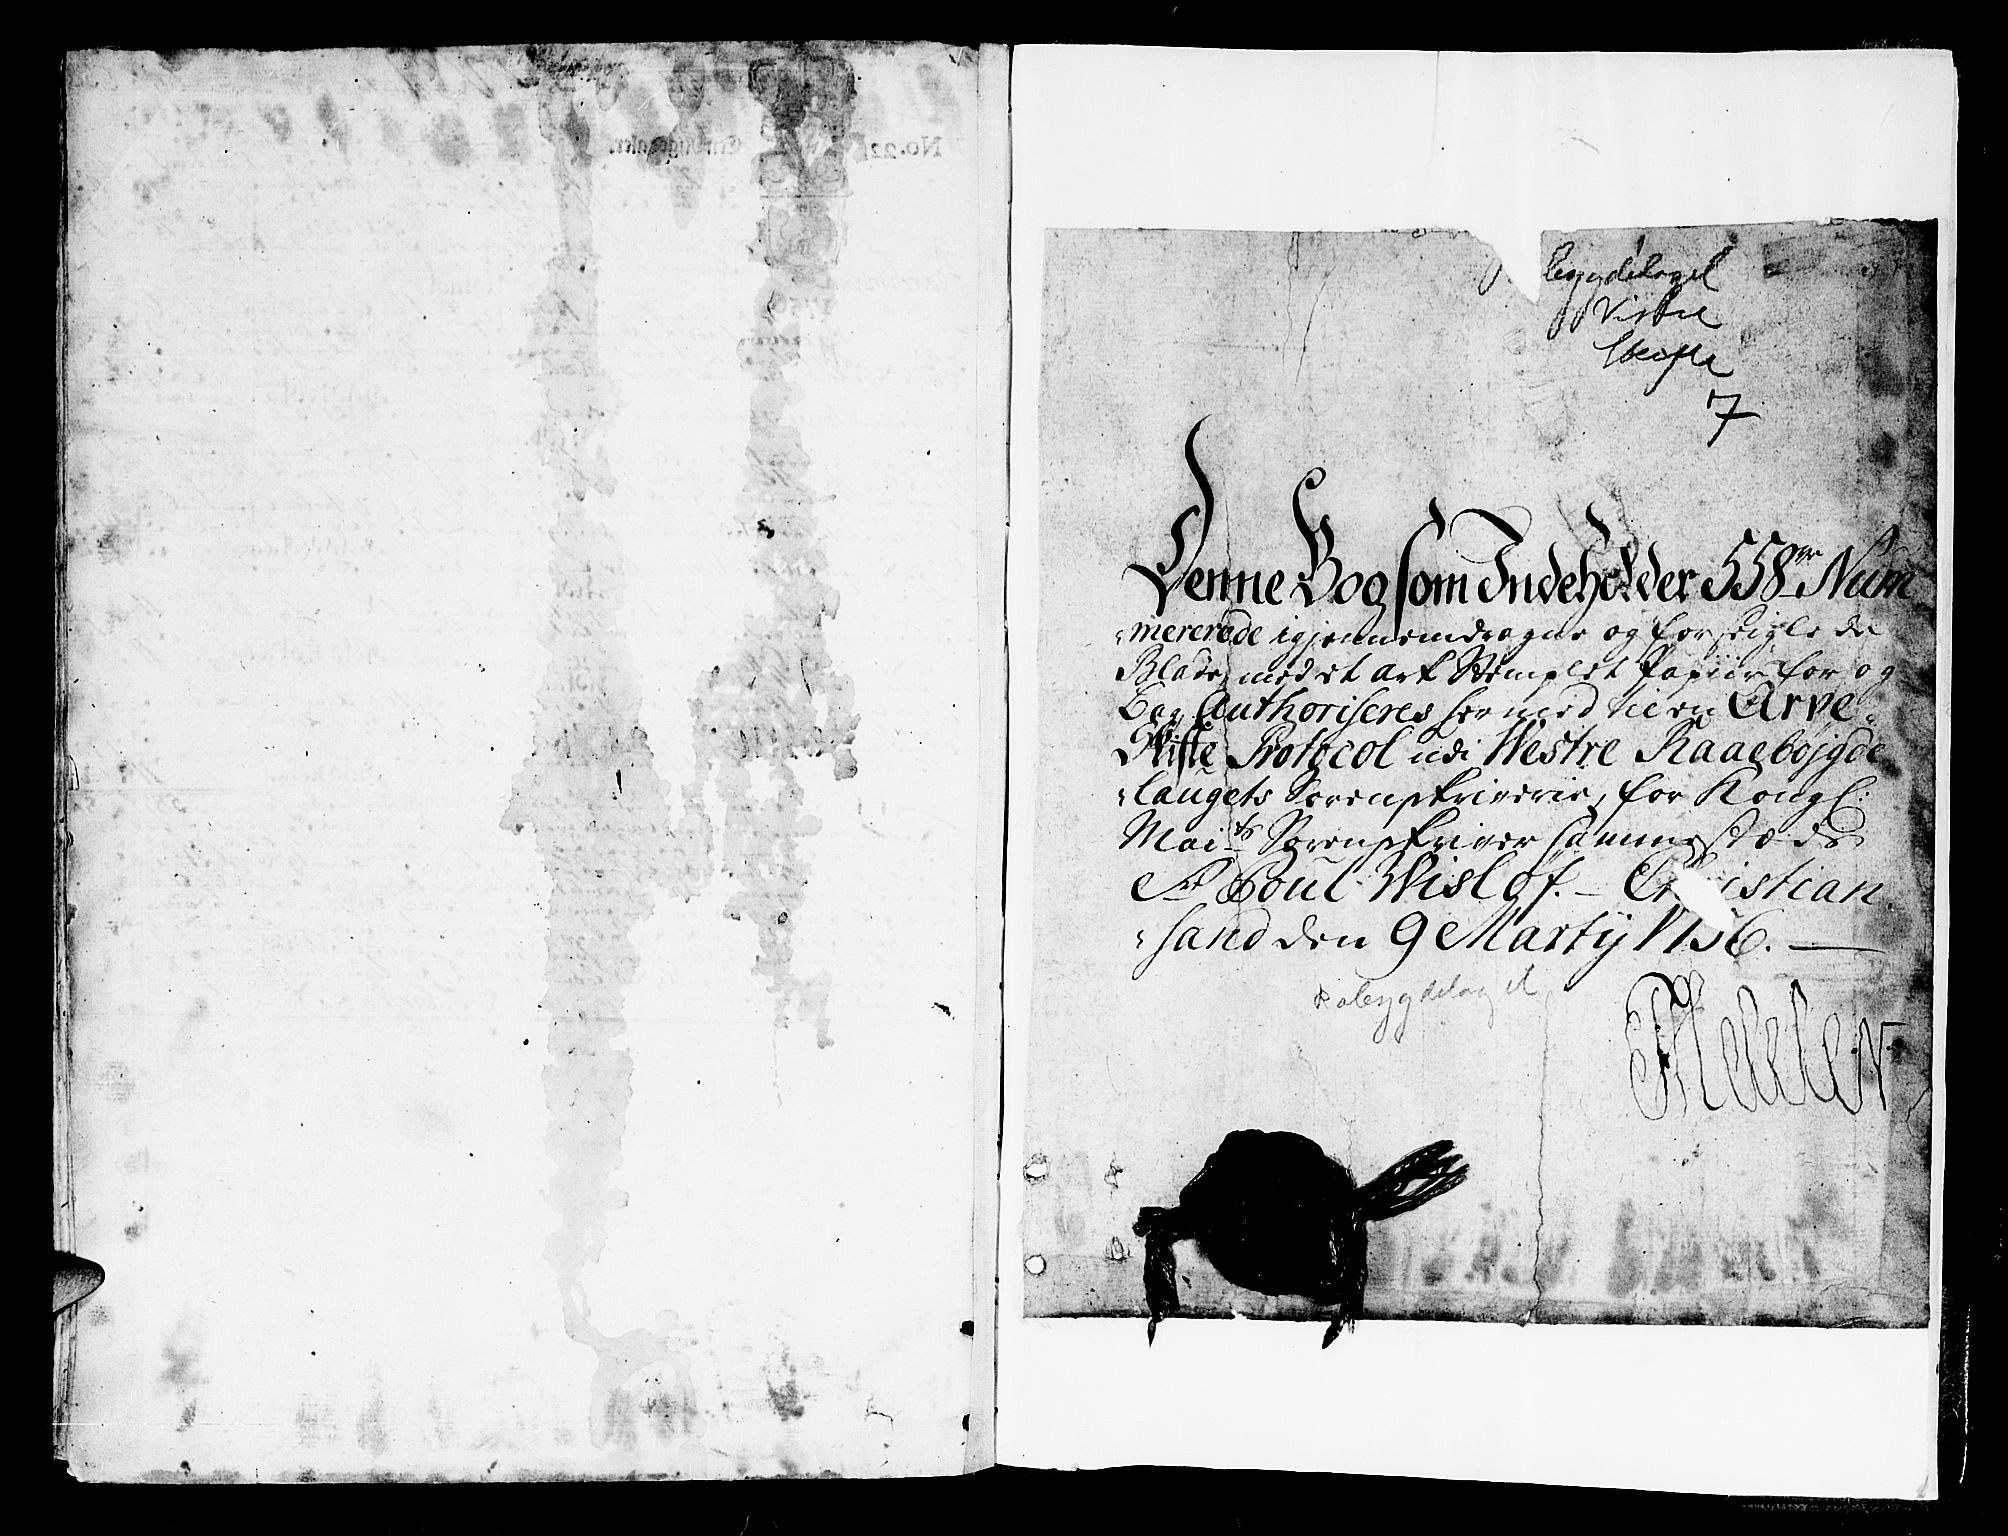 bygdelaget
Vestre
Skifte
7
Denne Bog som Indeholder 558 Num
mererede igjennemdragne og forseiglede
Blade, med et ark Stemplet Papiir for og
bag, Authoriseres hermed til en Arve
Skifte Protocol udi Westre Raaebøjgde
laugets Sorenskriverie, for Kongl:
Mai.ts Sorenskriver sammestæds
Sr. Poul Wisløf. – Christian
sand den 9 Martij 1756.
Rabygdelaget